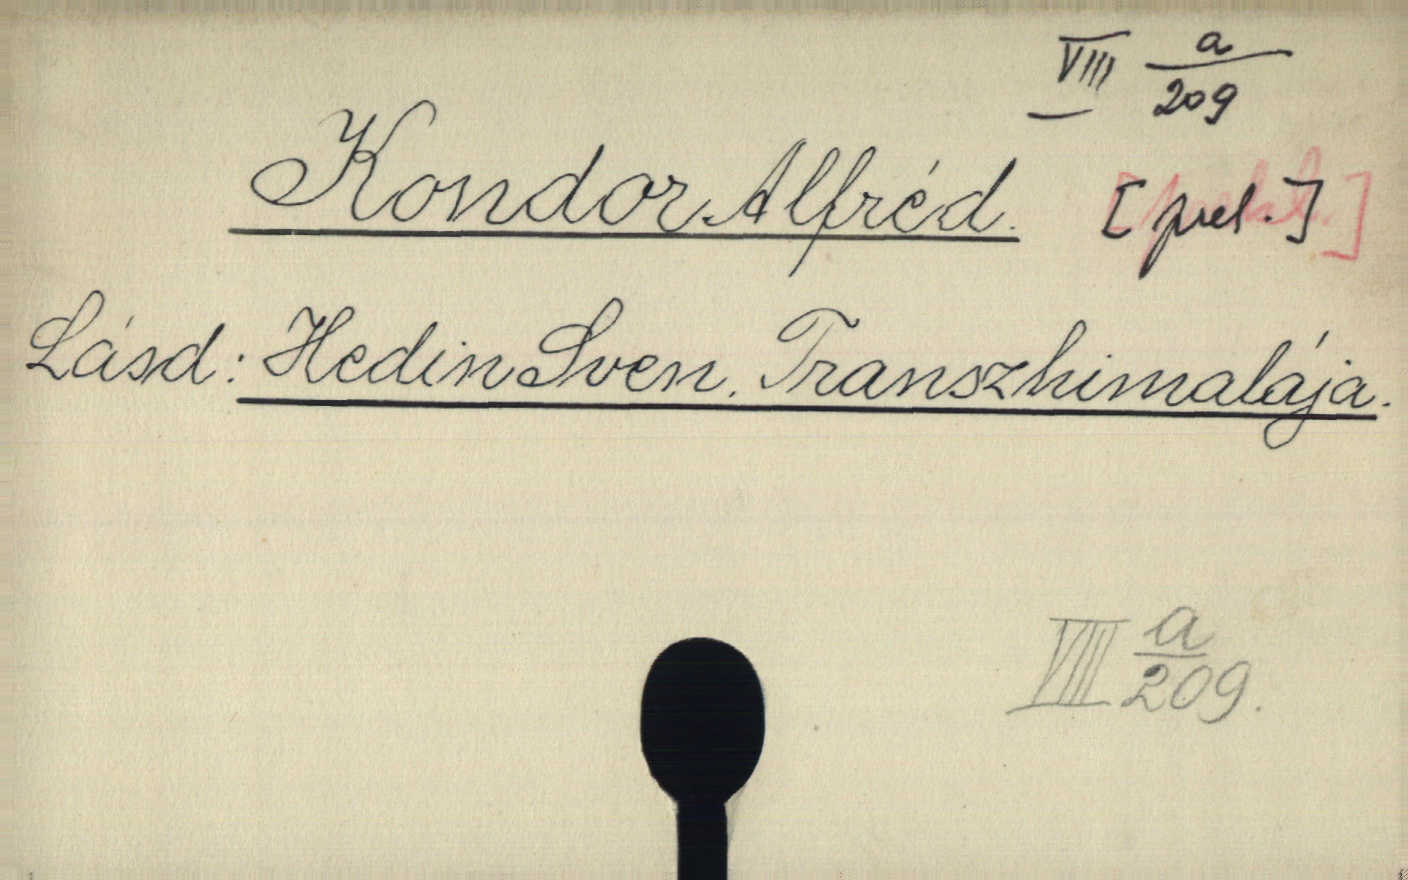 VIII a/209
Kondor Alfréd. [prel.]
Lásd: Hedin Sven. Transzhimalája.
VIII a/209.